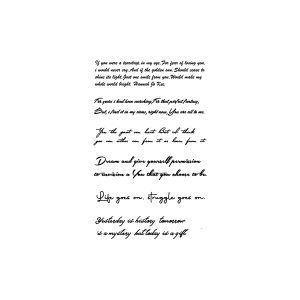 If you were a teardrop, in my eye, For fear of losing you,
i would never cry. And if the golden sun, Should cease to
shine its light, Just one smile from you, Would make my
whole world bright.
For years i had been searching, For that perfect fantasy,
But, i find it in my arms, right now, You are all to me.
You the past can hurt But I think
you can either run from it or learn from it
Dream and give yourself permission
to envision a You that you choose to be
Life goes on, struggle goes on.
Yesterday is history tomorrow
is a mystery but today is a gift